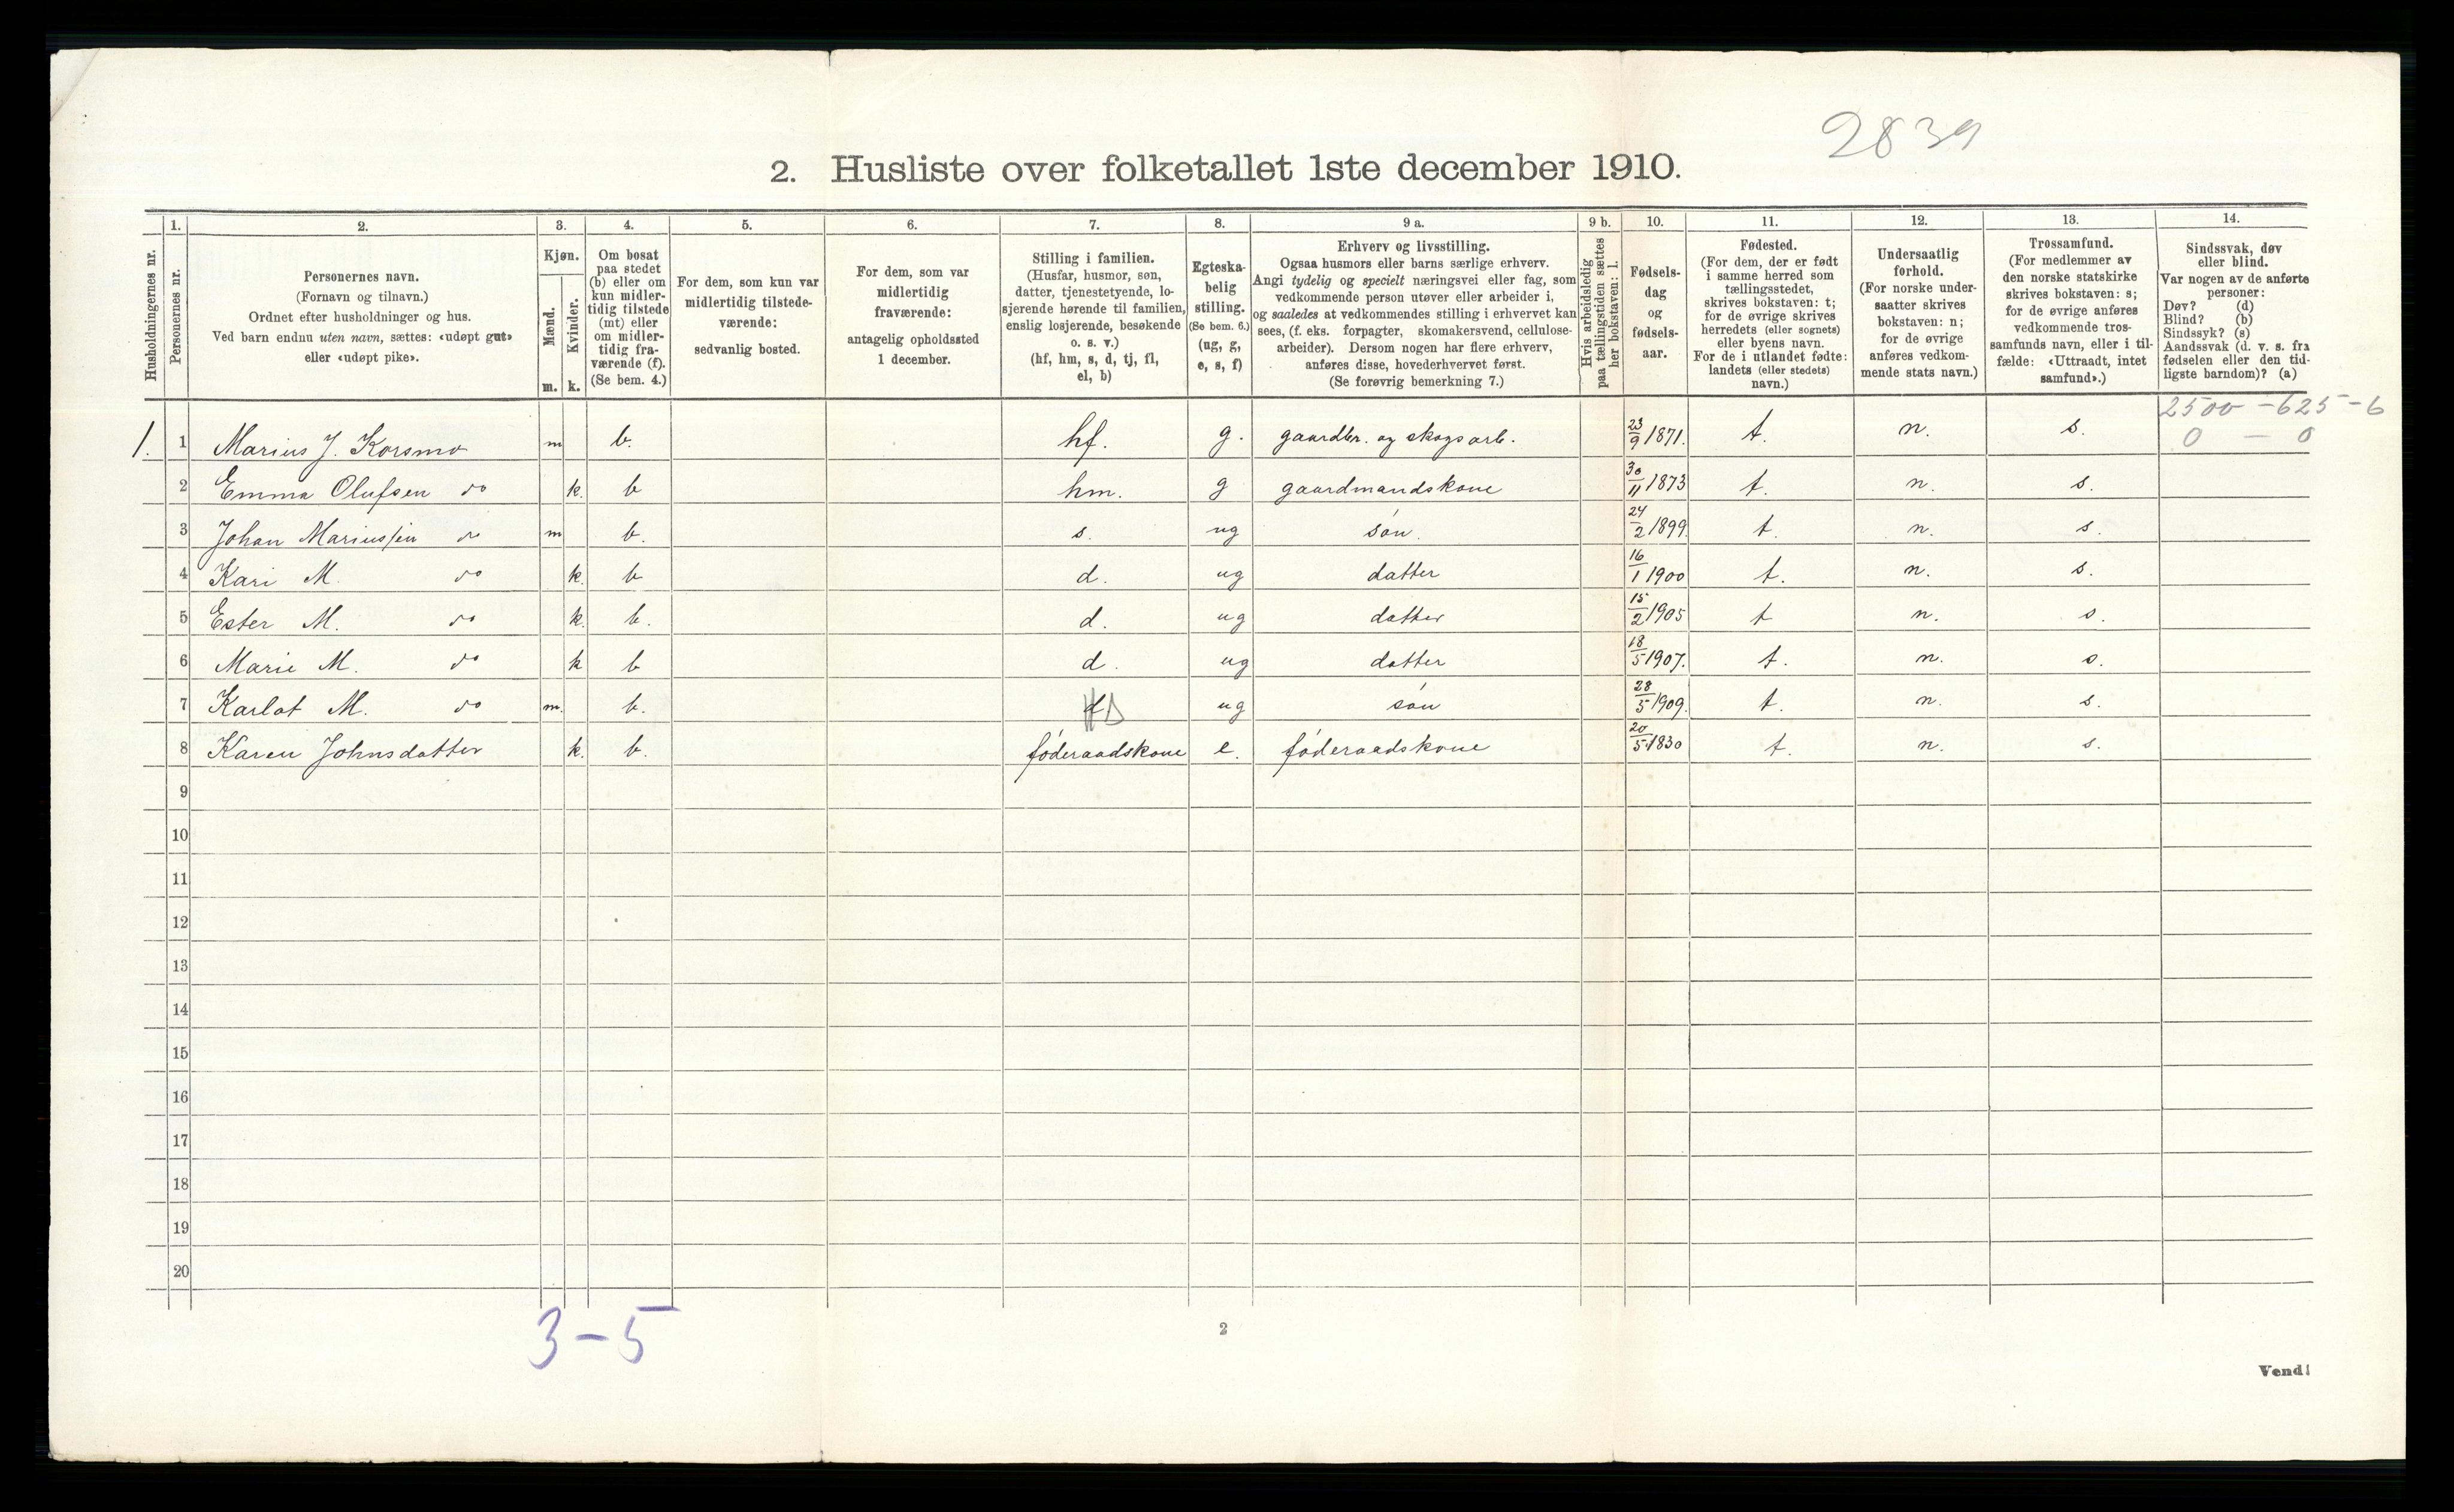 2839
2. Husliste over folketallet 1ste december 1910.
Husholdningernes nr.
1.
Personernes nr.
2.
Personernes navn.
(Fornavn og tilnavn.)
Ordnet efter husholdninger og hus.
Ved barn endnu uten navn, sættes: «udøpt gut»
eller «udøpt pike».
3.
Kjøn.
Mænd.
Kvinder.
m. k.
4.
Om bosat
paa stedet
(b) eller om
kun midler-
tidig tilstede
(mt) eller
om midler-
tidig fra-
værende (f).
(Se bem. 4.)
5.
For dem, som kun var
midlertidig tilstede-
værende:
sedvanlig bosted.
6.
For dem, som var
midlertidig
fraværende:
antagelig opholdssted
1 december.
7.
Stilling i familien.
(Husfar, husmor, søn,
datter, tjenestetyende, lo-
sjerende hørende til familien,
enslig losjerende, besøkende
o. s. v.)
(hf, hm, s, d, tj, fl,
el, b)
8.
Egteska-
belig
stilling.
(Se bem. 6.)
(ug, g,
e, s, f)
9 a.
Erhverv og livsstilling.
Ogsaa husmors eller barns særlige erhverv.
Angi tydelig og specielt næringsvei eller fag, som
vedkommende person utøver eller arbeider i,
og saaledes at vedkommendes stilling i erhvervet kan
sees, (f. eks. forpagter, skomakersvend, cellulose-
arbeider). Dersom nogen har flere erhverv,
anføres disse, hovederhvervet først.
(Se forøvrig bemerkning 7.)
9 b.
Hvis arbeidsledig
paa tællingstiden sættes
her bokstaven: l.
10.
Fødsels-
dag
og
fødsels-
aar.
11.
Fødested.
(For dem, der er født
i samme herred som
tællingsstedet,
skrives bokstaven: t;
for de øvrige skrives
herredets (eller sognets)
eller byens navn.
For de i utlandet fødte:
landets (eller stedets)
navn.)
12.
Undersaatlig
førhold.
(For norske under-
saatter skrives
bokstaven: n;
for de øvrige
anføres vedkom-
mende stats navn.)
13.
Trossamfund.
(For medlemmer av
den norske statskirke
skrives bokstaven: s;
for de øvrige anføres
vedkommende tros-
samfunds navn, eller i til-
fælde: «Uttraadt, intet
samfund».)
14.
Sindssvak, døv
eller blind.
Var nogen av de anførte
personer:
Døv? (d)
Blind? (b)
Sindssyk? (s)
Aandssvak (d. v. s. fra
fødselen eller den tid-
ligste barndom)? (a)
2500 - 625 - 6
0 - 0
1. 1 Marius J. Korsmo m b. hf. g. gaardbr. og skogsarb. 23/9 1871. t. n. s.
2 Emma Olufsen do k. b hm. g gaardmandskone 30/11 1873 t. n. s.
3 Johan Mariussen do m b. s. ug søn. 24/2 1899. t. n. s.
4 Kari M. do k. b d. ug datter 16/1 1900 t. n. s.
5 Ester M. do k. b. d. ug datter 15/2 1905 t n. s.
6 Marie M. do k b d. ug datter 18/5 1907. t. n. s.
7 Karlot M. do m. b. ug søn 28/5 1909. t. n. s.
8 Karen Johnsdatter k. b. føderaadskone e. føderaadskone 20/5 1830 t. n. s.
9
10
11
12
13
14
15
16
17
18
19
20
3 - 5
2
Vend!